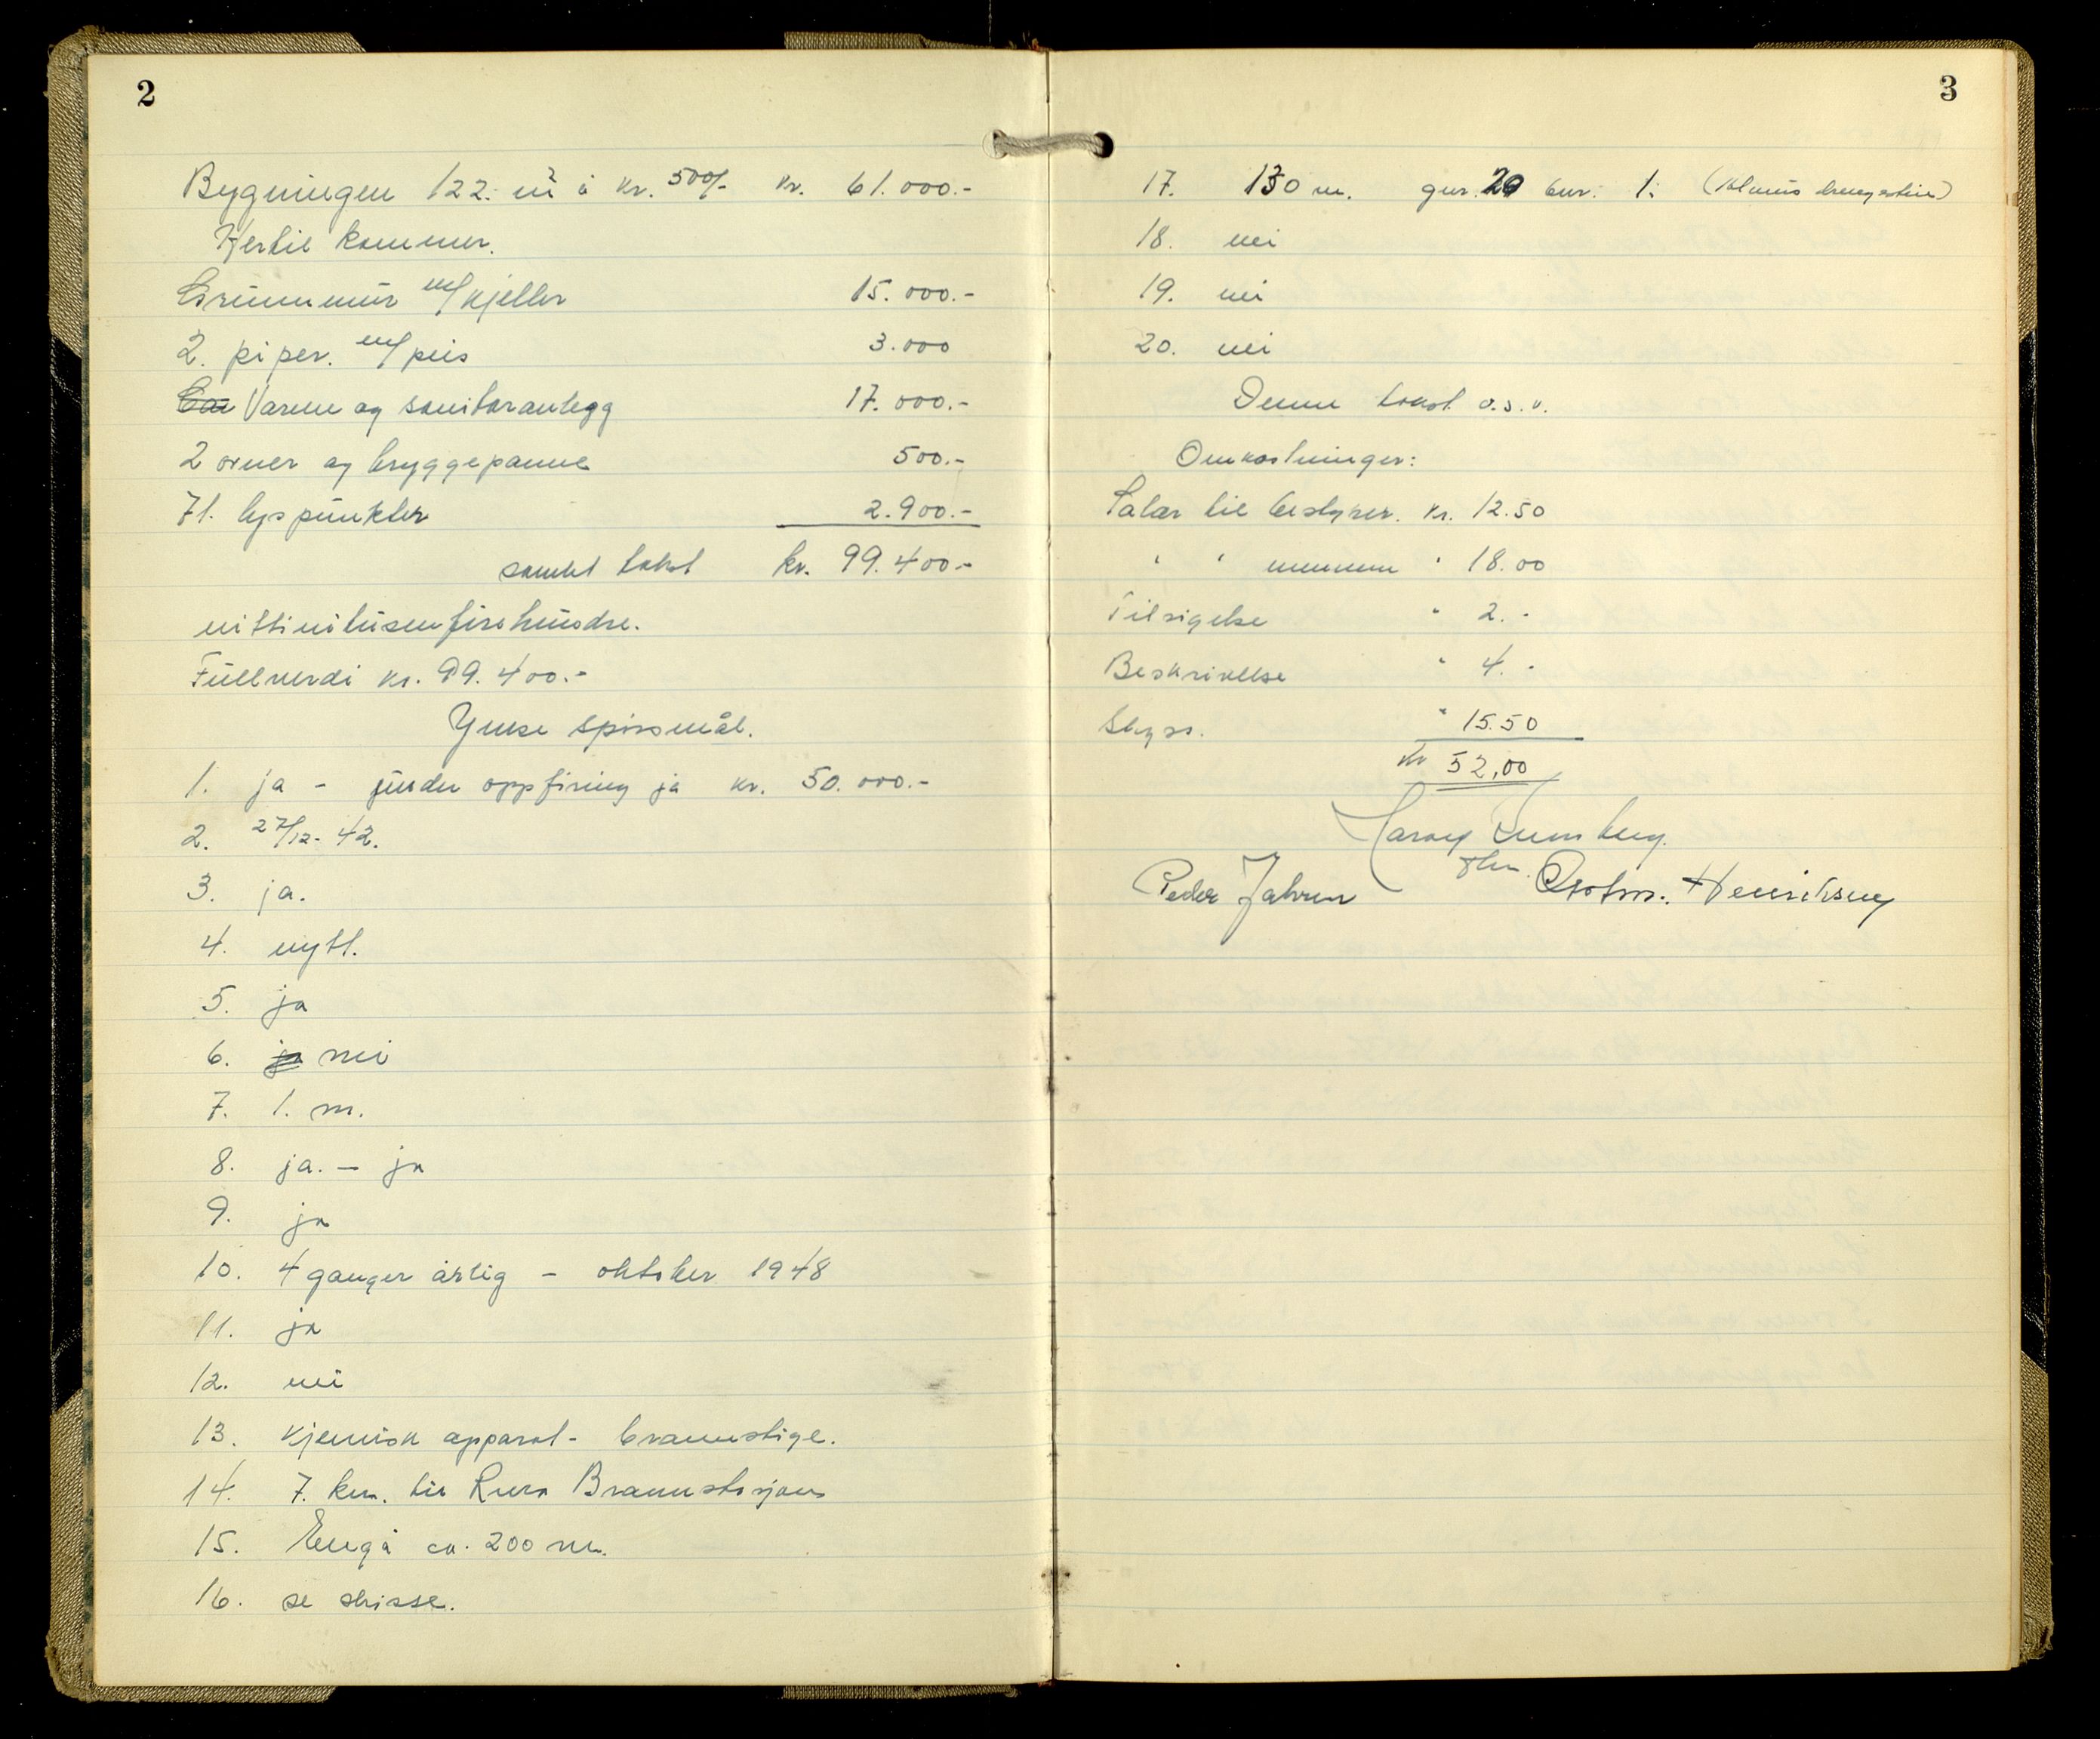 2
Bygningen 122. m² à kr. 500/- kr. 61.000.-
Hertil kommer.
Grunnmur m/kjeller 15.000.-
2. piper. m/peis 3.000
Varme og sanitæranlegg 17.000.-
2 ovner og bryggepanne 500.-
71. lyspunkter 2.900.-
samlet takst kr. 99.400.-
nittinitusenfirehundre.
Fullverdi kr. 99.400.-
Ymse spørsmål.
1. ja - under oppføring ja kr. 50.000.-
2. 27/12- 42.
3. ja.
4. nytt.
5. ja
6. ja nei
7. 1. m.
8. ja. - ja
9. ja
10. 4 ganger årlig - oktober 1948
11. ja
12. nei
13. kjemisk apparat - brannstige.
14. 7. km. til Brannstasjon
15. Engå ca. 200 m.
16. se skisse.
3
17. 130 m. gnr. 20 bnr. 1.
18. nei
19. nei
20. nei
Denne takst o.s.v.
Omkostninger:
Salær til bestyrer. kr. 12.50
" " mennene " 18.00
Tilsigelse " 2.-
Beskrivelse " 4.-
Skyss. " 15.50
kr 52,00
Peder Henriksen